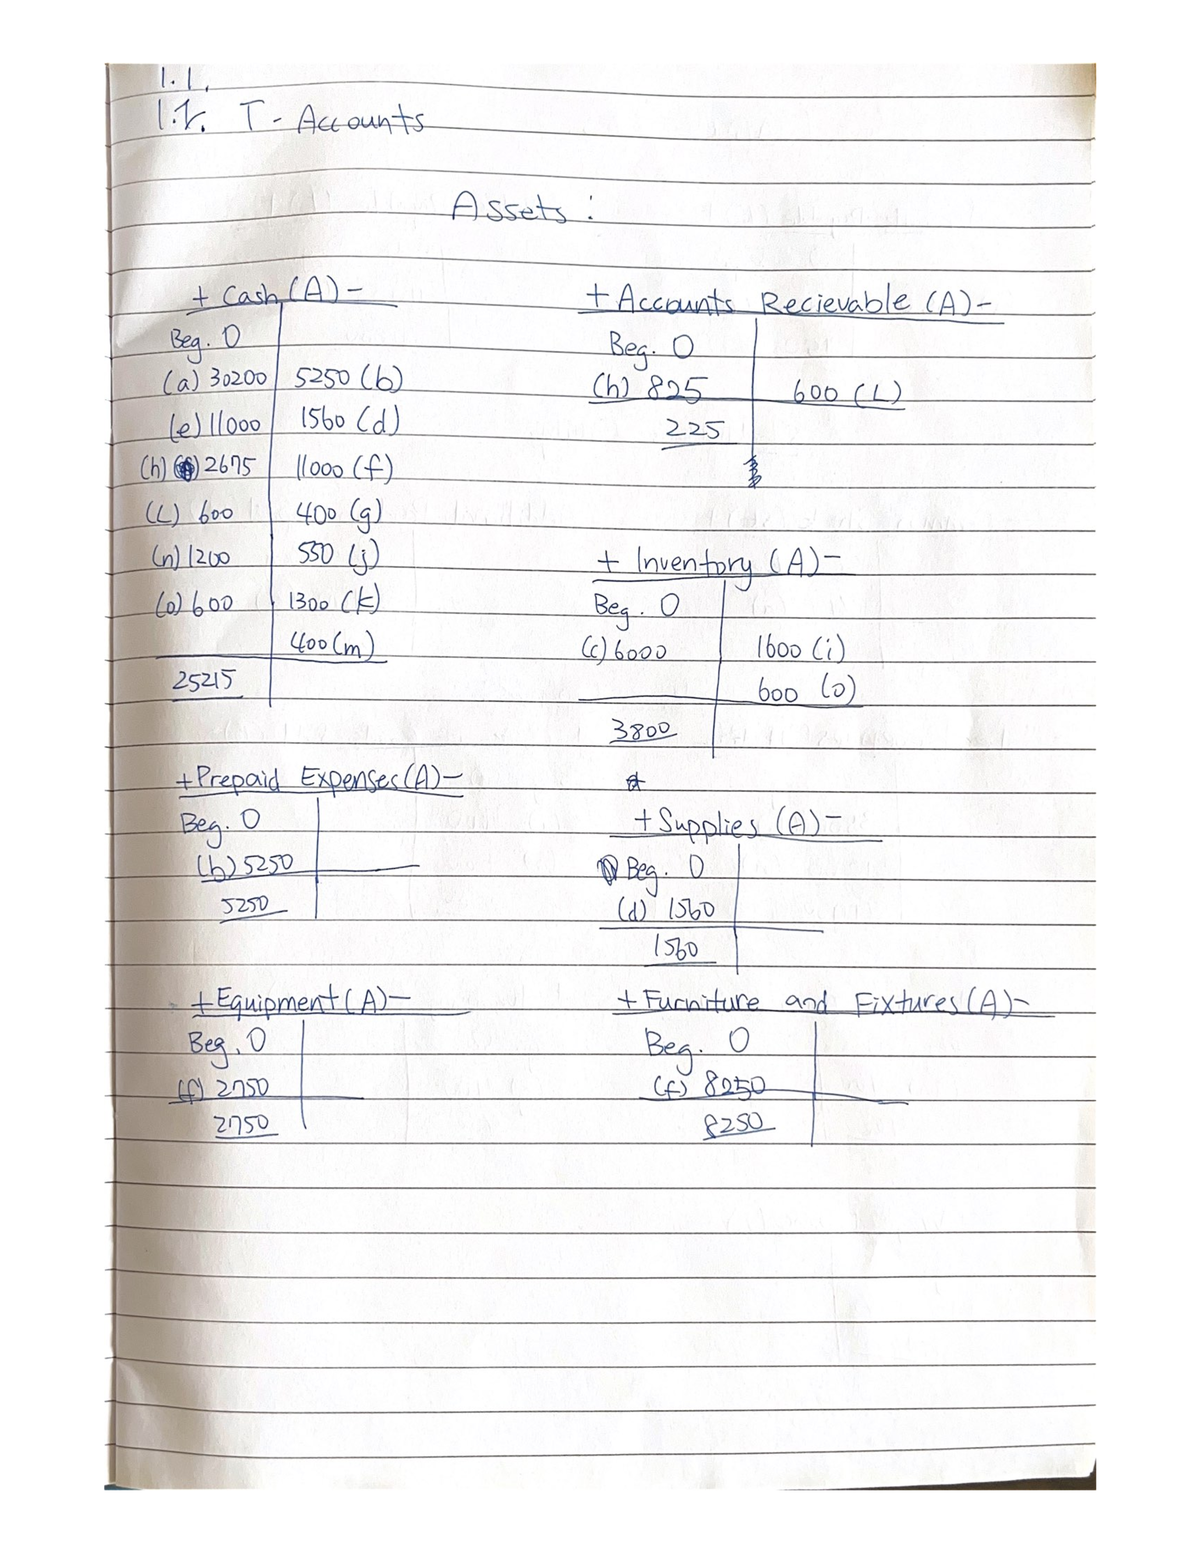 1.1.
1.2. T - Accounts
Assets :
+ Cash (A) -
Beg. 0
(a) 30200 5250 (b)
(e) 11000 1560 (d)
(h) 2675 11000 (f)
(L) 600 400 (g)
(n) 1200 550 (j)
(o) 600 1300 (k)
400 (m)
25215
+ Accounts Recievable (A) -
Beg. 0
(h) 825 600 (L)
225
+ Inventory (A) -
Beg. 0
(c) 6000 1600 (i)
600 (o)
3800
+ Prepaid Expenses (A) -
Beg. 0
(b) 5250
5250
+ Supplies (A) -
Beg. 0
(d) 1560
1560
+ Equipment (A) -
Beg. 0
(f) 2750
2750
+ Furniture and Fixtures (A) -
Beg. 0
(f) 8250
8250